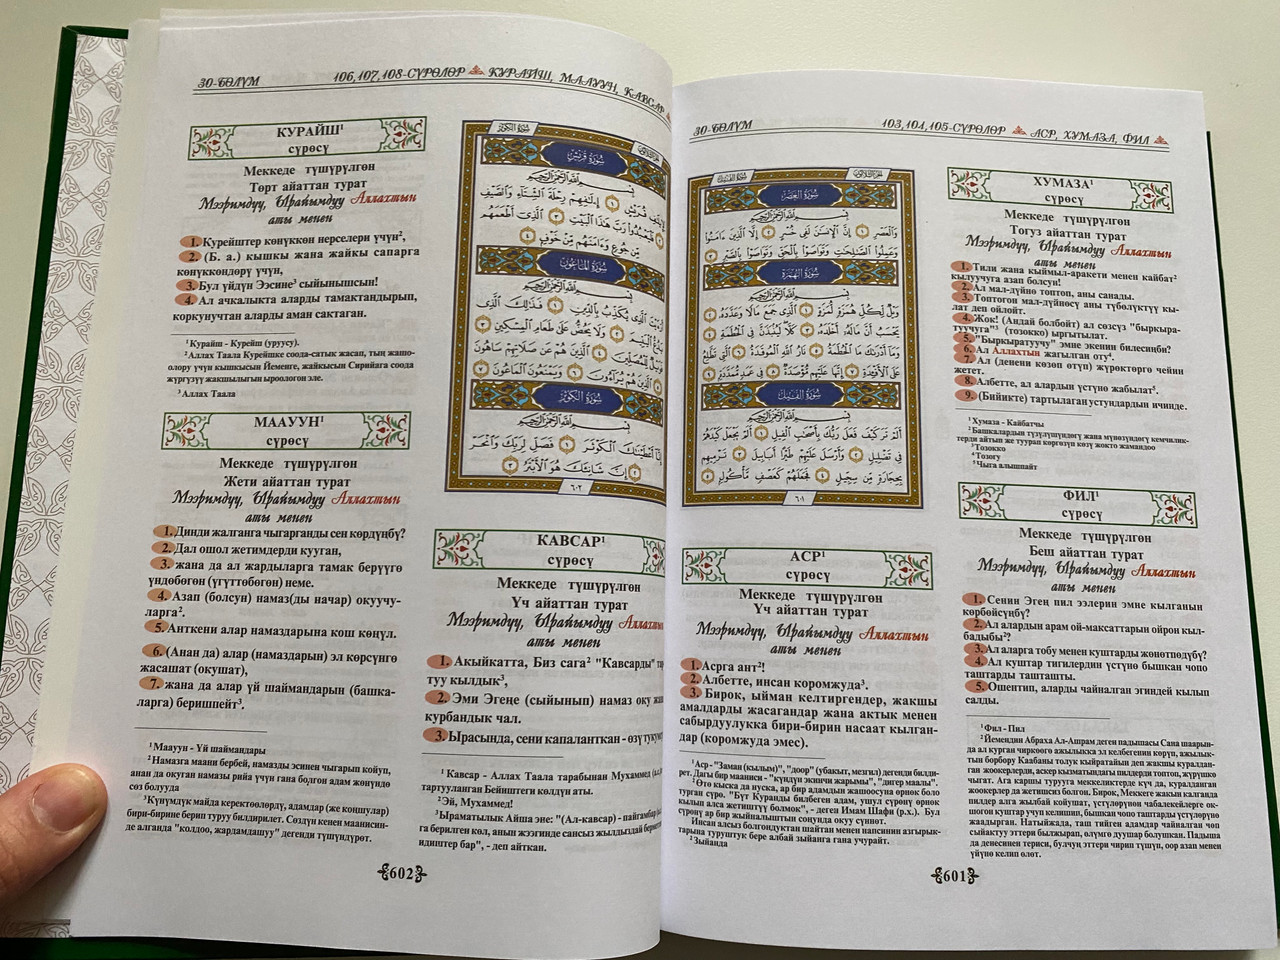 30-БӨЛҮМ 106,107,108-СҮРӨЛӨР КУРАЙШ, МААУУН, КАВСАР
КУРАЙШ¹
сүрөсү
Меккеде түшүрүлгөн
Төрт айаттан турат
Мээримдүү, Ырайымдуу Аллахтын
аты менен
1. Курейштер көнүккөн нерселери үчүн²,
2. (Б. а.) кышкы жана жайкы сапарга
көнүккөндөрү үчүн,
3. Бул үйдүн Ээсине³ сыйынышсын!
4. Ал ачкалыкта аларды тамактандырып,
коркунучтан аларды аман сактаган.
¹ Курайш - Курейш (уруусу).
² Аллах Таала Курейшке соода-сатык жасап, тың жашо-
олору үчүн кышкысын Йеменге, жайкысын Сирийага соода
жүргүзүү жакшылыгын ыроологон эле.
³ Аллах Таала
МААУУН¹
сүрөсү
Меккеде түшүрүлгөн
Жети айаттан турат
Мээримдүү, Ырайымдуу Аллахтын
аты менен
1. Динди жалганга чыгарганды сен көрдүңбү?
2. Дал ошол жетимдерди кууган,
3. жана да ал жардыларга тамак берүүгө
үндөбөгөн (үгүттөбөгөн) неме.
4. Азап (болсун) намаз(ды начар) окуучу-
ларга².
5. Анткени алар намаздарына кош көңүл.
6. (Анан да) алар (намаздарын) эл көрсүнгө
жасашат (окушат),
7. жана да алар үй шаймандарын (башка-
ларга) беришпейт³.
¹ Маауун - Үй шаймандары
² Намазга маани бербей, намазды эсинен чыгарып коюп,
анан да окуган намазы рийа үчүн гана болгон адам жөнүндө
сөз болууда
³ Күнүмдүк майда керектөөлөрдү, адамдар (же коңшулар)
бири-бирине берип туруу билдирилет. Сөздүн кенен маанисин-
де алганда "колдоо, жардамдашуу" дегенди түшүндүрөт.
سُورَةُ الكَوْثَر
سُورَةُ قُرَيْش
بِسْمِ اللَّهِ الرَّحْمَٰنِ الرَّحِيمِ
إِۦلَٰفِهِمْ رِحْلَةَ ٱلشِّتَآءِ وَٱلصَّيْفِ
فَلْيَعْبُدُوا۟ رَبَّ هَٰذَا ٱلْبَيْتِ ٣ ٱلَّذِىٓ أَطْعَمَهُم
مِّن جُوعٍ وَءَامَنَهُم مِّنْ خَوْفٍۭ ٤
سُورَةُ المَاعُون
بِسْمِ اللَّهِ الرَّحْمَٰنِ الرَّحِيمِ
ٱلَّذِى يُكَذِّبُ بِٱلدِّينِ ١ فَذَٰلِكَ ٱلَّذِى
يَدُعُّ ٱلْيَتِيمَ ٢ وَلَا يَحُضُّ عَلَىٰ طَعَامِ ٱلْمِسْكِينِ ٣
لِّلْمُصَلِّينَ ٤ ٱلَّذِينَ هُمْ عَن صَلَاتِهِمْ سَاهُونَ
٥ ٱلَّذِينَ هُمْ يُرَآءُونَ ٦ وَيَمْنَعُونَ ٱلْمَاعُونَ ٧
سُورَةُ الكَوْثَر
بِسْمِ اللَّهِ الرَّحْمَٰنِ الرَّحِيمِ
إِنَّآ أَعْطَيْنَٰكَ ٱلْكَوْثَرَ ١ فَصَلِّ لِرَبِّكَ وَٱنْحَرْ
٢ إِنَّ شَانِئَكَ هُوَ ٱلْأَبْتَرُ ٣
٦٠٢
КАВСАР¹
сүрөсү
Меккеде түшүрүлгөн
Үч айаттан турат
Мээримдүү, Ырайымдуу
аты менен
1. Акыйкатта, Биз сага² "Кавсарды"
туу кылдык³,
2. Эми Эгеңе (сыйынып) намаз оку
курбандык чал.
3. Ырасында, сени капаланткан - өзү
¹ Кавсар - Аллах Таала тарабынан Мухаммед
тартууланган Бейиштеги көлдүн аты.
² Эй, Мухаммед!
³ Ыраматылык Айша эне: "(Ал-кавсар) - пайгамбар
га берилген көл, анын жээгинде сансыз жылдыздай
идиштер бар", - деп айткан.
602
30-БӨЛҮМ 103,104,105-СҮРӨЛӨР АСР, ХУМАЗА, ФИЛ
سُورَةُ الفِيل
سُورَةُ العَصْر
بِسْمِ اللَّهِ الرَّحْمَٰنِ الرَّحِيمِ
وَٱلْعَصْرِ ١ إِنَّ ٱلْإِنسَٰنَ لَفِى خُسْرٍ ٢ إِلَّا ٱلَّذِينَ ءَامَنُوا۟
وَعَمِلُوا۟ ٱلصَّٰلِحَٰتِ وَتَوَاصَوْا۟ بِٱلْحَقِّ وَتَوَاصَوْا۟ بِٱلصَّبْرِ ٣
سُورَةُ الهُمَزَة
بِسْمِ اللَّهِ الرَّحْمَٰنِ الرَّحِيمِ
وَيْلٌ لِّكُلِّ هُمَزَةٍ لُّمَزَةٍ ١ ٱلَّذِى جَمَعَ مَالًا وَعَدَّدَهُۥ ٢
يَحْسَبُ أَنَّ مَالَهُۥٓ أَخْلَدَهُۥ ٣ كَلَّا لَيُنۢبَذَنَّ فِى ٱلْحُطَمَةِ ٤
وَمَآ أَدْرَىٰكَ مَا ٱلْحُطَمَةُ ٥ نَارُ ٱللَّهِ ٱلْمُوقَدَةُ ٦ ٱلَّتِى تَطَّلِعُ
عَلَى ٱلْأَفْـِٔدَةِ ٧ إِنَّهَا عَلَيْهِم مُّؤْصَدَةٌ ٨ فِى عَمَدٍ مُّمَدَّدَةٍۭ ٩
سُورَةُ الفِيل
بِسْمِ اللَّهِ الرَّحْمَٰنِ الرَّحِيمِ
أَلَمْ تَرَ كَيْفَ فَعَلَ رَبُّكَ بِأَصْحَٰبِ ٱلْفِيلِ ١ أَلَمْ يَجْعَلْ كَيْدَهُمْ
فِى تَضْلِيلٍ ٢ وَأَرْسَلَ عَلَيْهِمْ طَيْرًا أَبَابِيلَ ٣ تَرْمِيهِم
بِحِجَارَةٍ مِّن سِجِّيلٍ ٤ فَجَعَلَهُمْ كَعَصْفٍ مَّأْكُولٍۭ ٥
٦٠١
АСР¹
сүрөсү
Меккеде түшүрүлгөн
Үч айаттан турат
Мээримдүү, Ырайымдуу Аллахтын
аты менен
1. Асрга ант²!
2. Албетте, инсан коромжуда³.
3. Бирок, ыйман келтиргендер, жакшы
амалдарды жасагандар жана актык менен
сабырдуулукка бири-бирин насаат кылган-
дар (коромжуда эмес).
¹ Аср - "Заман (кылым)", "доор" (убакыт, мезгил) дегенди билди-
рет. Дагы бир мааниси - "күндүн экинчи жарымы", "дигер маалы".
² Өтө кыска да нуска, ар бир адамдын жашоосуна өрнөк боло
турган сүрө. "Бүт Куранды билбеген адам, ушул сүрөнү өрнөк
кылып алса жетиштүү болмок", - деген Имам Шафи (р.х.). Бул
сүрөнү ар бир жыйналыштын соңунда окуу сүннөт.
Инсан алсыз болгондуктан шайтан менен напсинин азгырык-
тарына туруштук бере албай зыйанга гана учурайт.
² Зыйанда
ХУМАЗА¹
сүрөсү
Меккеде түшүрүлгөн
Тогуз айаттан турат
Мээримдүү, Ырайымдуу Аллахтын
аты менен
1. Тили жана кыймыл-аракети менен кайбат²
кылуучуга азап болсун!
2. Ал мал-дүйнө топтоп, аны санады.
3. Топтогон мал-дүйнөсү аны түбөлүктүү кы-
лат деп ойлойт.
4. Жок! (Андай болбойт) ал сөзсүз "быркыра-
туучуга"³ (тозокко) ыргытылат.
5. "Быркыратуучу" эмне экенин билесиңби?
6. Ал Аллахтын жагылган оту⁴.
7. Ал (денени көзөп өтүп) жүрөктөргө чейин
жетет.
8. Албетте, ал алардын үстүнө жабылат⁵.
9. (Бийикте) тартылаган устундардын ичинде.
¹ Хумаза - Кайбатчы
² Башкалардын түзүлүшүндөгү жана мүнөзүндөгү кемчилик-
терди айтып же туурап көргөзүп көзү жокто жамандоо
³ Тозокко
⁴ Тозогу
⁵ Чыга алышпайт
ФИЛ¹
сүрөсү
Меккеде түшүрүлгөн
Беш айаттан турат
Мээримдүү, Ырайымдуу Аллахтын
аты менен
1. Сенин Эгең пил ээлерин эмне кылганын
көрбөйсүңбү?
2. Ал алардын арам ой-максаттарын ойрон кыл-
бадыбы²?
3. Ал аларга тобу менен куштарды жөнөтпөдүбү?
4. Ал куштар тигилердин үстүнө бышкан чопо
таштарды ташташты.
5. Ошентип, аларды чайналган эгиндей кылып
салды.
¹ Фил - Пил
² Йемендин Абраха Ал-Ашрам деген падышасы Сана шаарын-
да ал курган чиркөөгө ажылыкка эл келбегенин көрүп, ажылык-
тын борбору Каабаны толук кыйратайын деп жакшы куралдан-
ган жоокерлерди, аскер кызматындагы пилдерди топтоп, жүрүшкө
чыгат. Ага каршы турууга меккеликтерде күч да, куралданган
жоокерлер да жетишсиз болгон. Бирок, Меккеге жакын калганда
пилдер алга жылбай койушат, үстүлөрүнөн чабалекейлерге ок-
шогон куштар учуп келишип, бышкан чопо таштарды үстүлөрүнө
жаадырган. Натыйжада, таш тийген адамдар чайналган чөп
сыйактуу эттери былжырап, өлүмгө дуушар болушкан. Падыша
да денесинен териси, булчуң эттери чирип түшүп, оор азап менен
үйүнө келип өлөт.
601